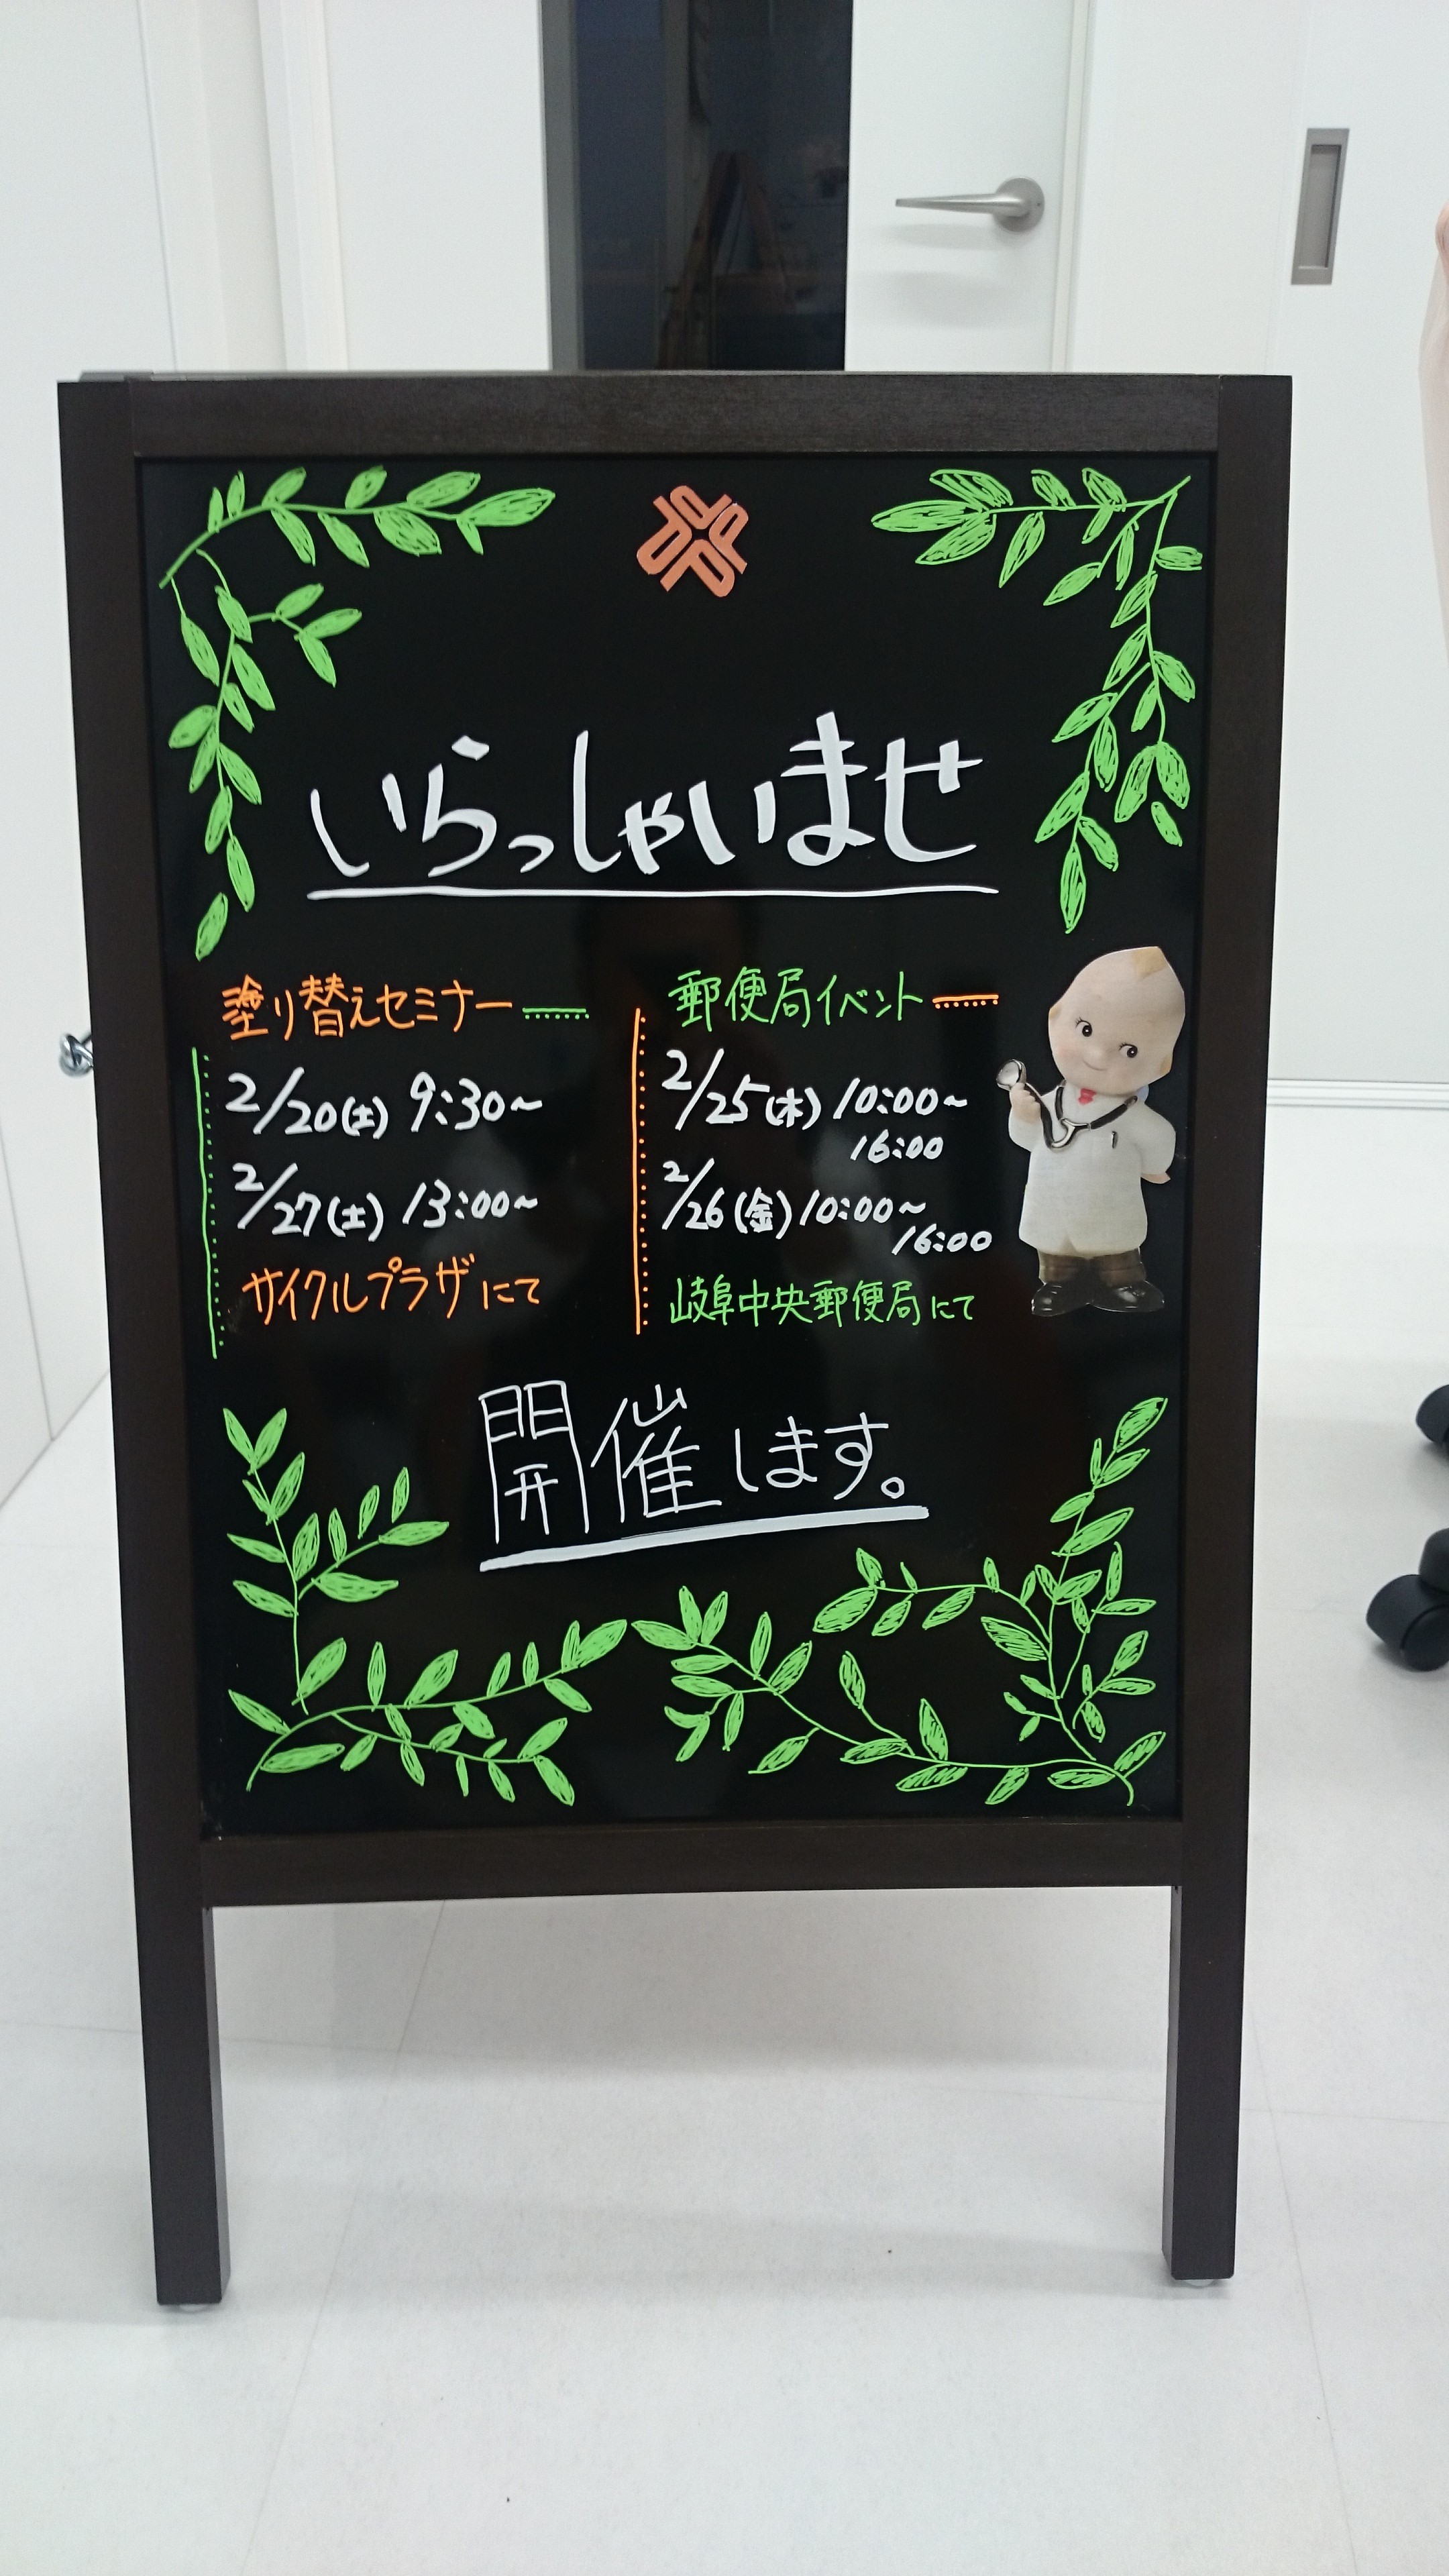 いらっしゃいませ
塗り替えセミナー
2/20(土) 9:30~
2/27(土) 13:00~
サイクルプラザにて
郵便局イベント
2/25(木) 10:00~
16:00
2/26(金) 10:00~
16:00
岐阜中央郵便局にて
開催します。